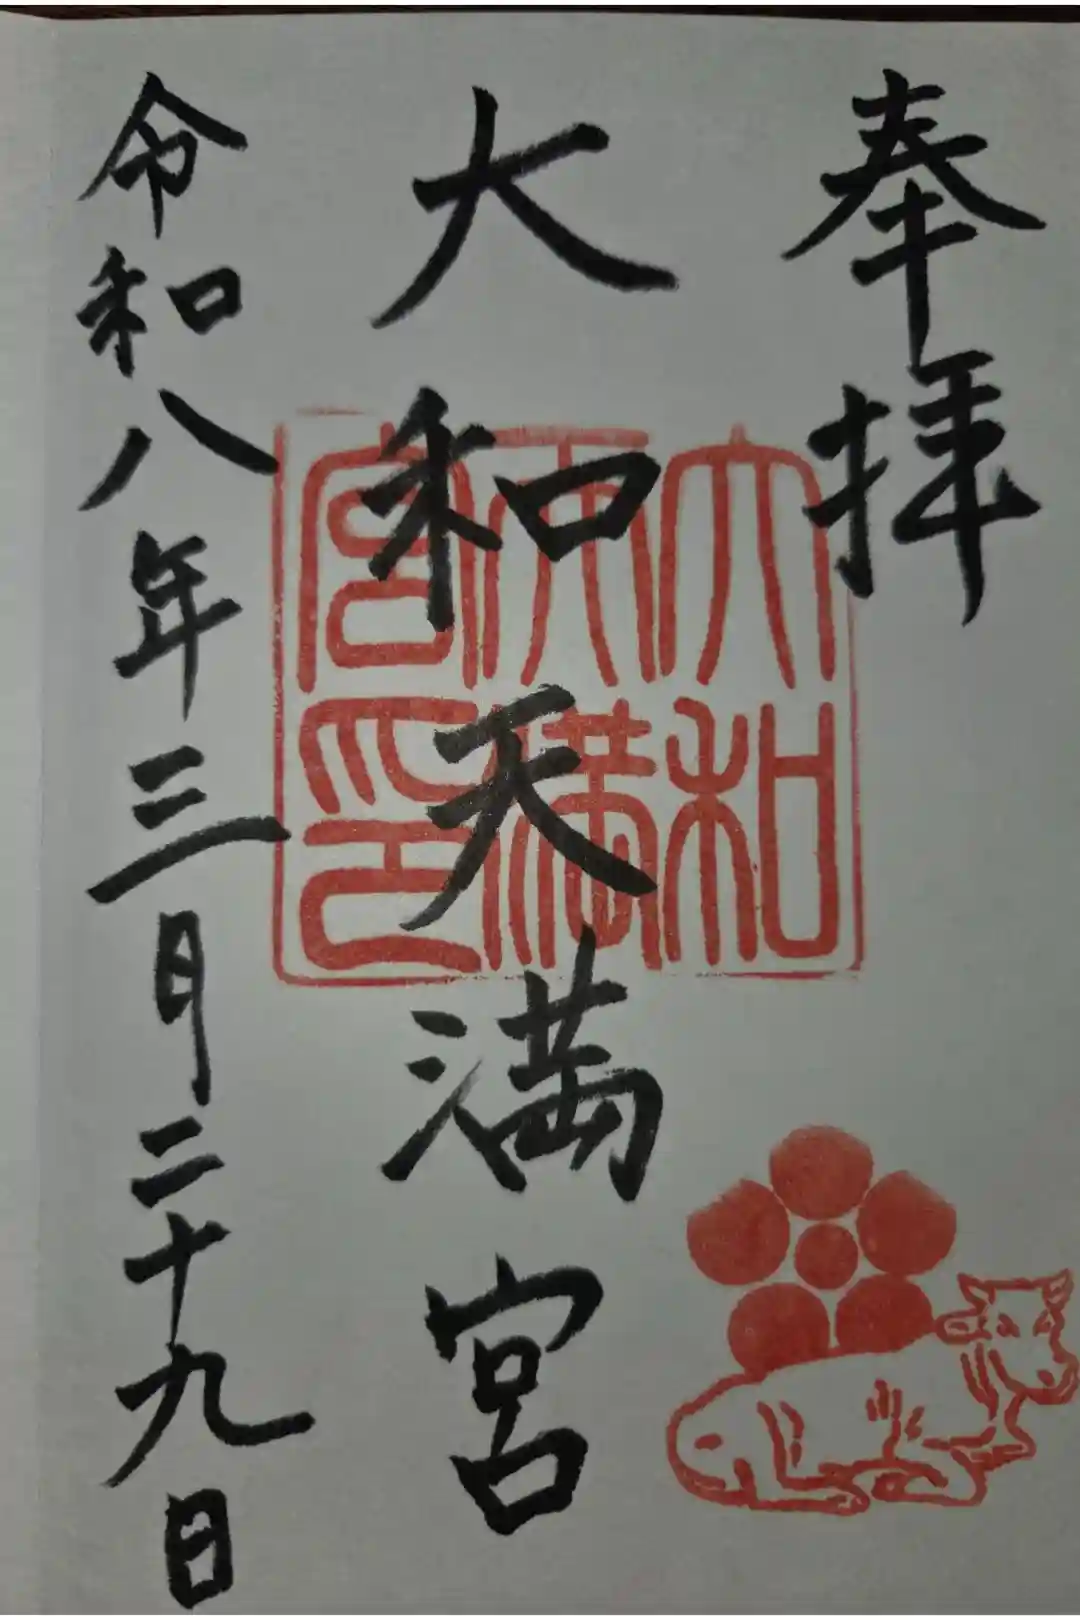 奉拝
大和天満宮
令和八年三月二十九日
大和
天満
宮印